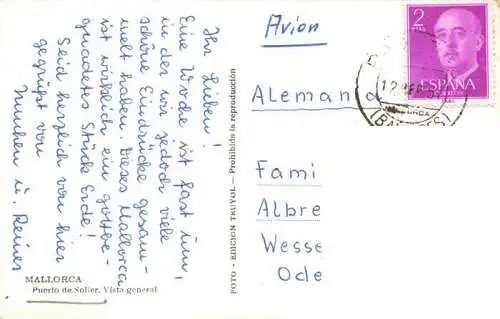 Ihr Lieben!
Eine Woche ist fast um,
in der wir jedoch viele
schöne Eindrücke gesam-
melt haben. Dieses Mallorca
ist wirklich ein gottbe-
gnadetes Stück Erde!
Seid herzlich von hier
gegrüßt von
u. Reiner
MALLORCA
Puerto de Soller. Vista general
FOTO - EDICION TRUYOL - Prohibida la reproducción
Avion
2
PTAS
ESPAÑA
CORREOS
Alemana
Fami
Albre
Wesse
Ode